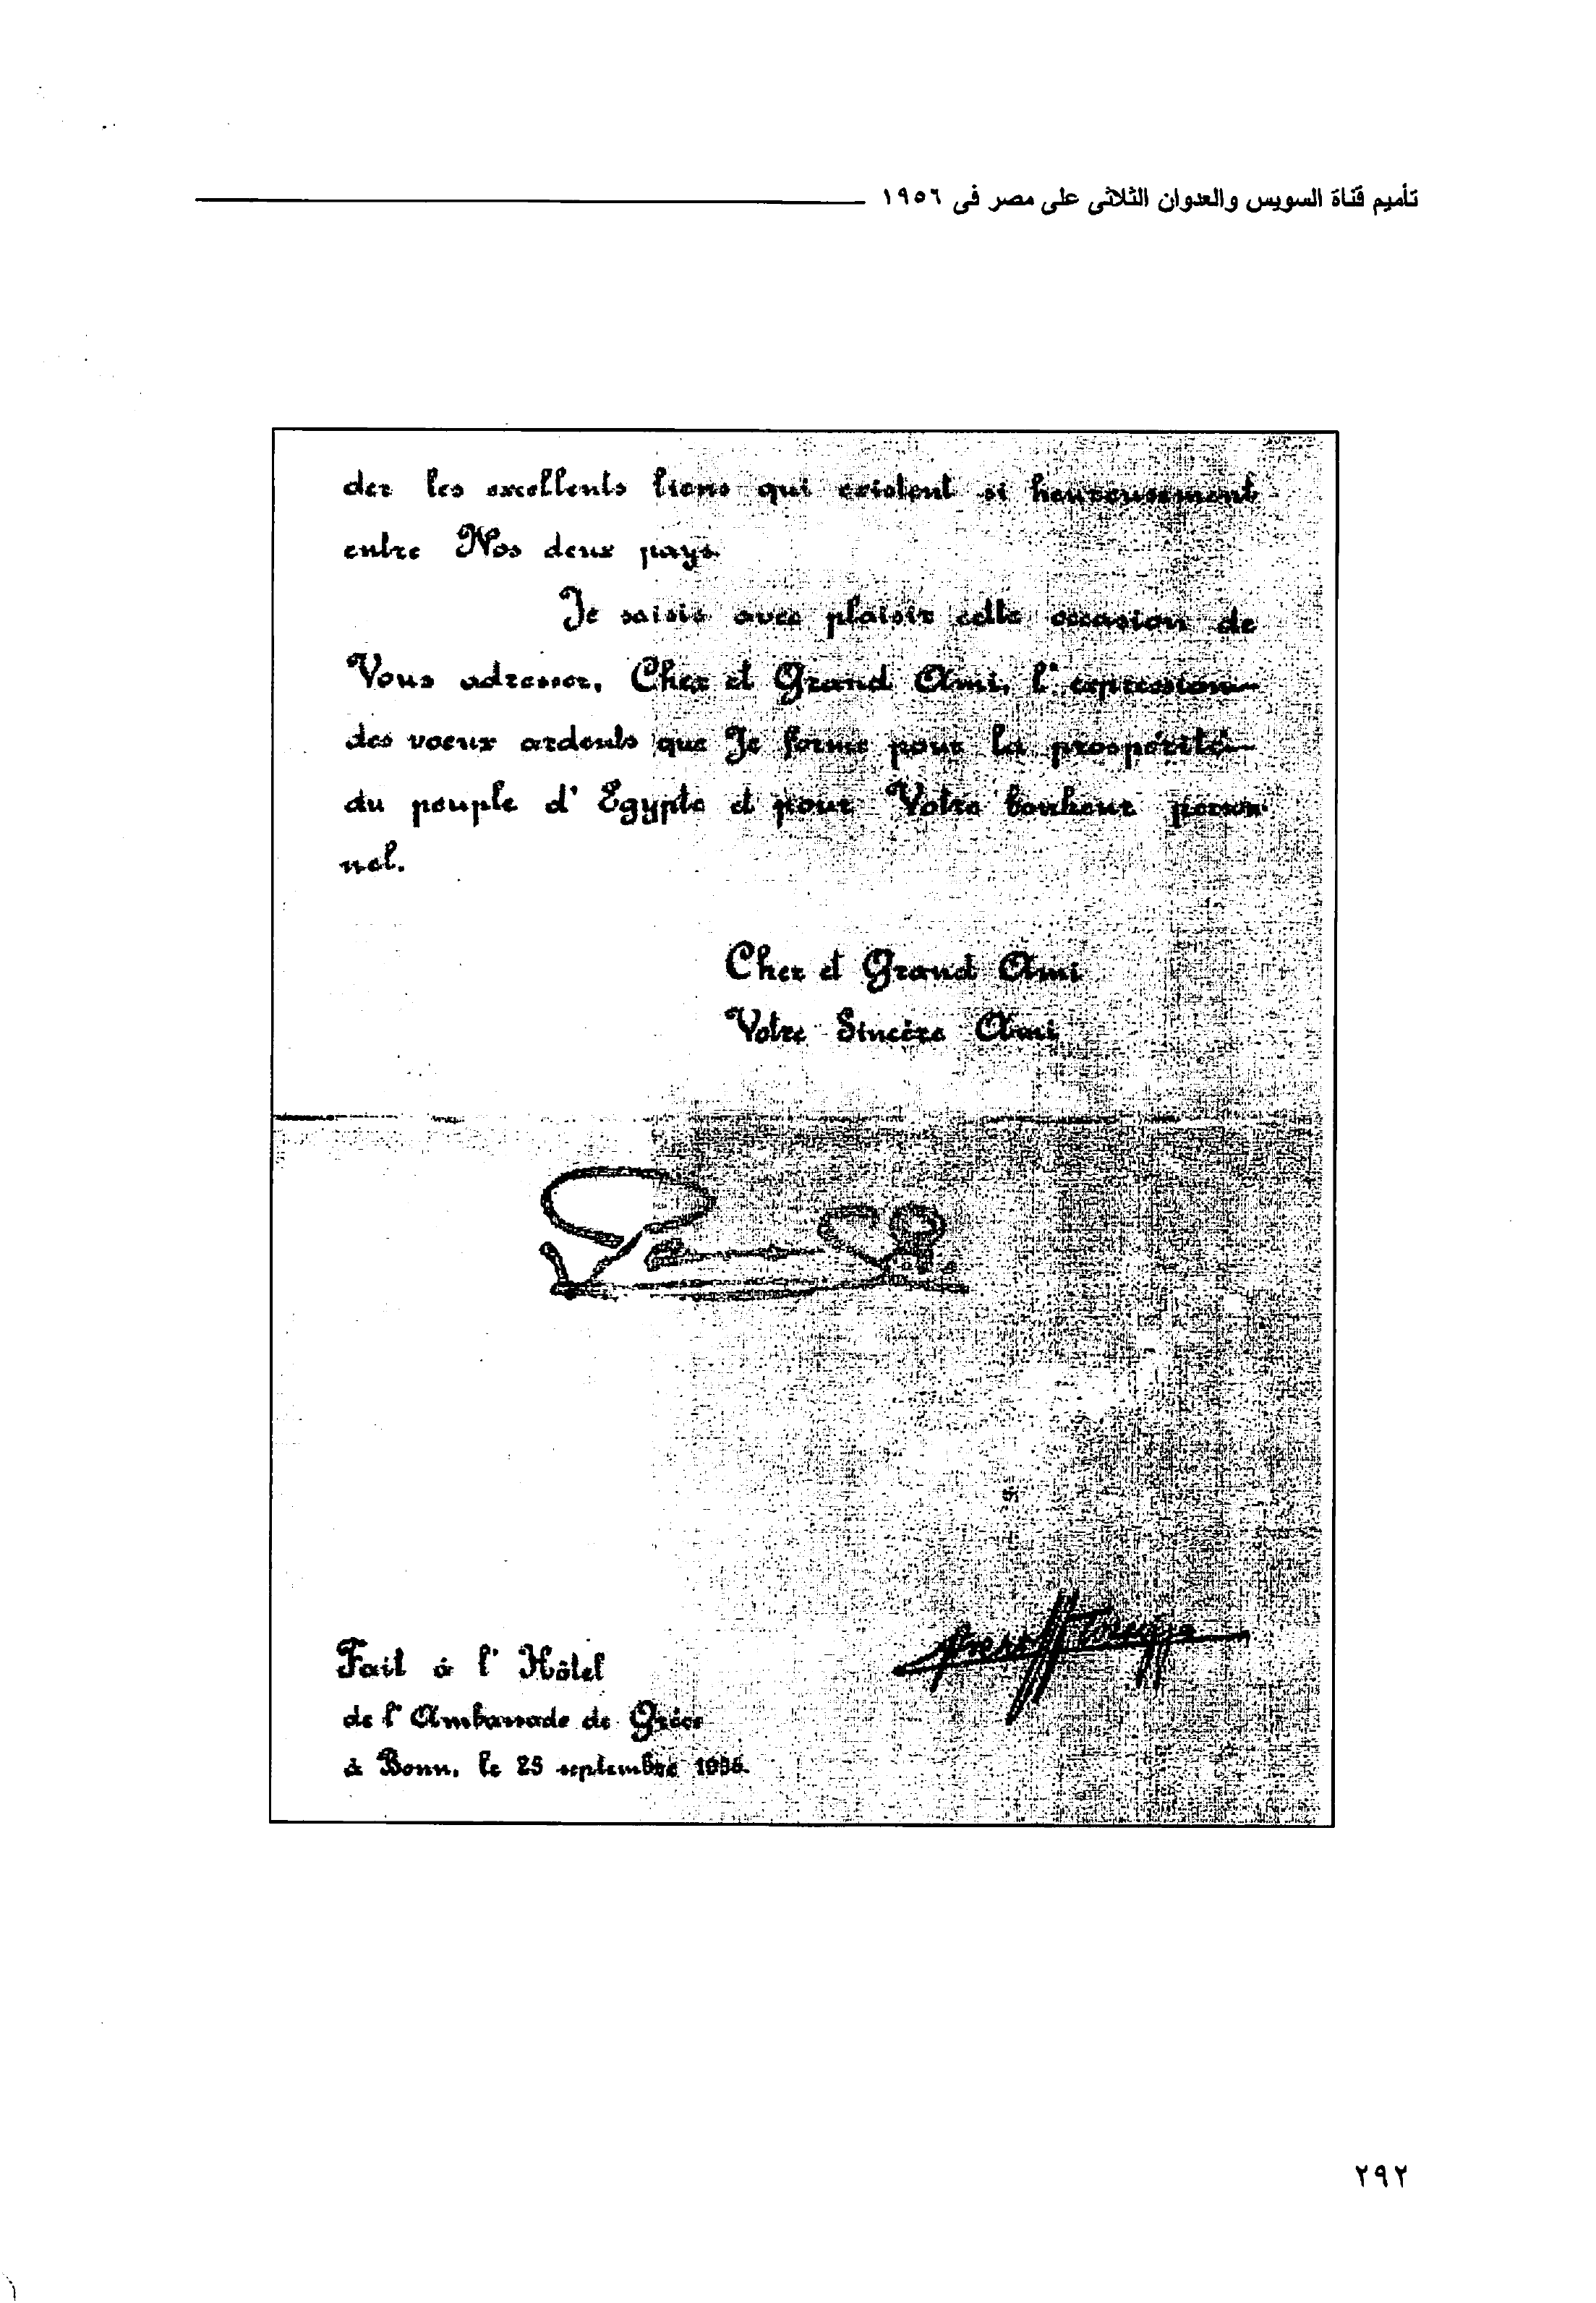 تأميم قناة السويس والعدوان الثلاثى على مصر فى ١٩٥٦
der les excellents liens qui existent si heureusement
entre Nos deux pays.
Je saisis avec plaisir cette occasion de
Vous adresser, Cher et Grand Ami, l'expression
des voeux ardents que Je forme pour la prospérité
du peuple d'Egypte et pour Votre bonheur person
nel.
Cher et Grand Ami
Votre Sincère Ami
Fait à l'Hôtel
de l'Ambassade de Grèce
à Bonn, le 25 septembre 1956.
٢٩٢